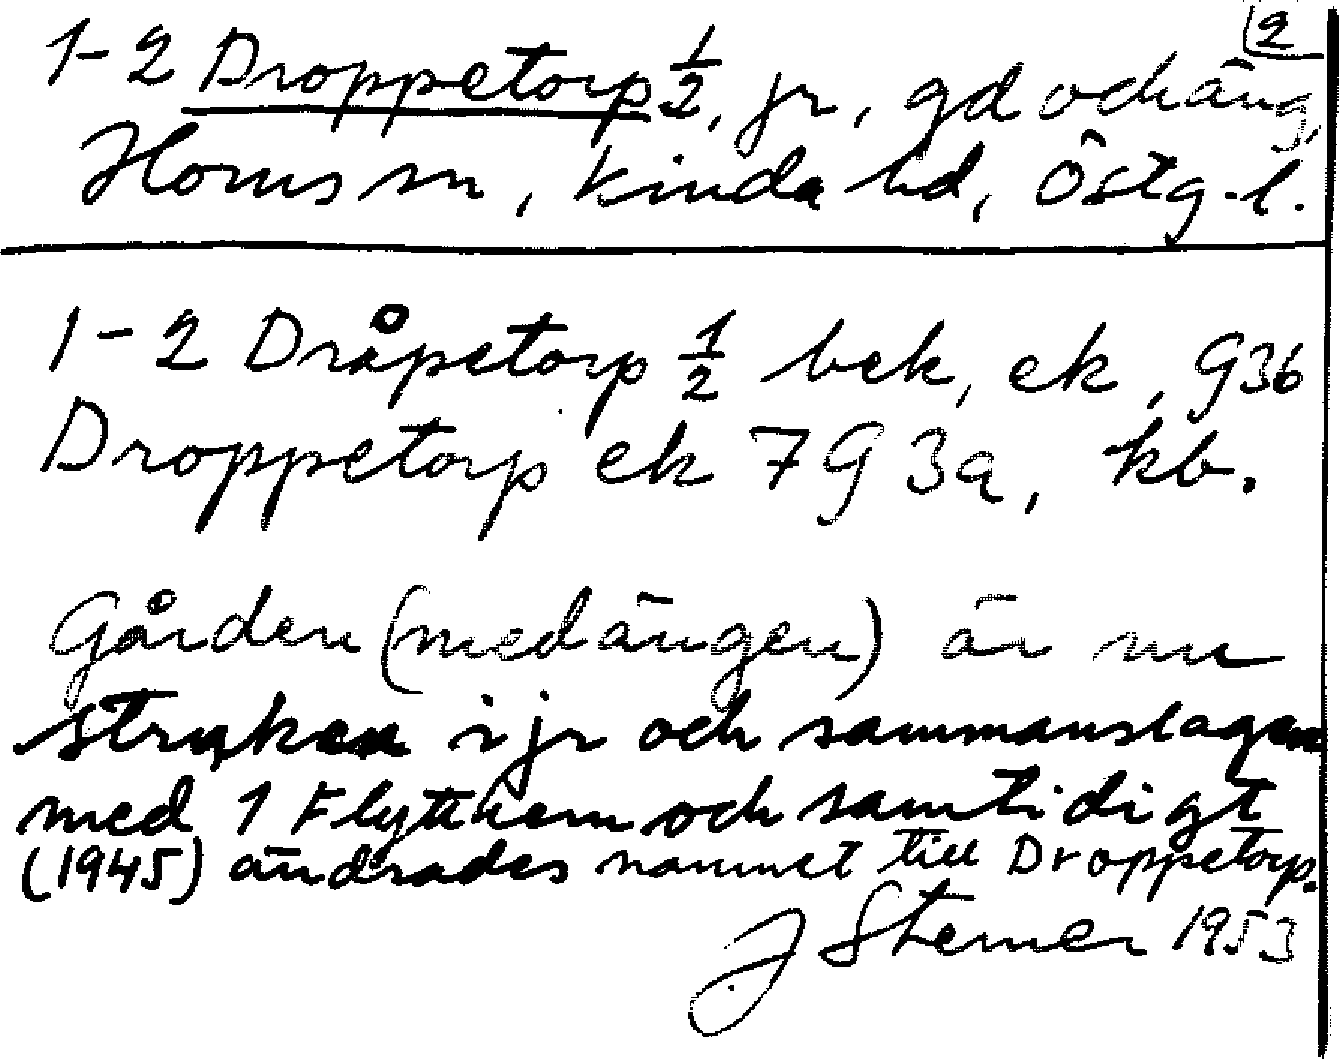 2
1-2 Droppetorp 1/2, jr, gd och äng,
Horns sn, Kinda hd, Östg.l.
1-2 Dråpetorp 1/2 bek, ek, G36
Droppetorp ek 7G3a, kb.
Gården (med ängen) är nu
struken i jr och sammanslagen
med 1 Flytthem och samtidigt
(1945) ändrades namnet till Droppetorp.
J Sterner 1953